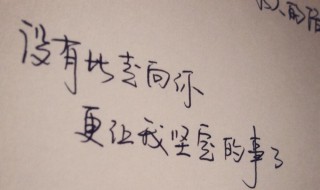 没有比走向你
更让我坚定的事了